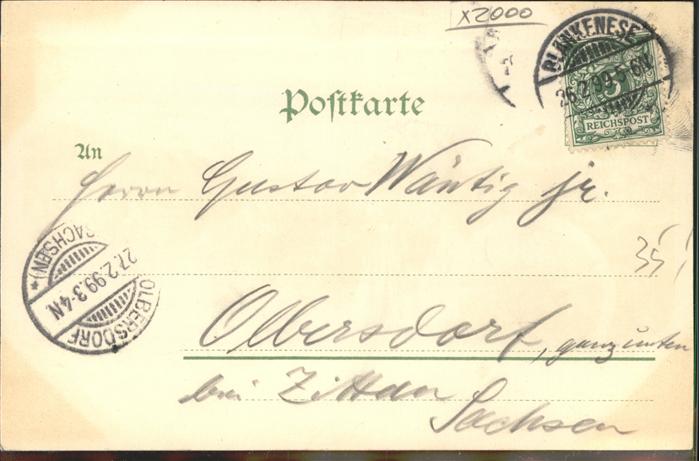 x2000
BLANKENESE
26.2.99.5-6N.
5
REICHSPOST
Postkarte
An
Herrn Gustav Wäntig jr.
35
OLBERSDORF
27.2.99.3-4N
(SACHSEN) *
Olbersdorf, ganz unten
bei Zittau
Sachsen